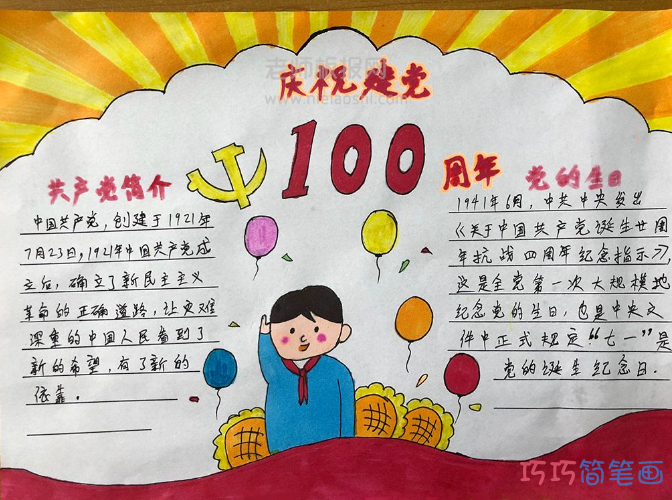 老师板报网
www.nielaoshi.com
庆祝建党
100
周年
共产党简介
中国共产党,创建于1921年
7月23日,1921年中国共产党成
立后,确立了新民主主义
革命的正确道路,让灾难
深重的中国人民看到了
新的希望,有了新的
依靠.
党的生日
1941年6月,中共中央发出
《关于中国共产党诞生廿周
年抗战四周年纪念指示》,
这是全党第一次大规模地
纪念党的生日,也是中央文
件中正式规定“七一”是
党的诞生纪念日.
巧巧简笔画